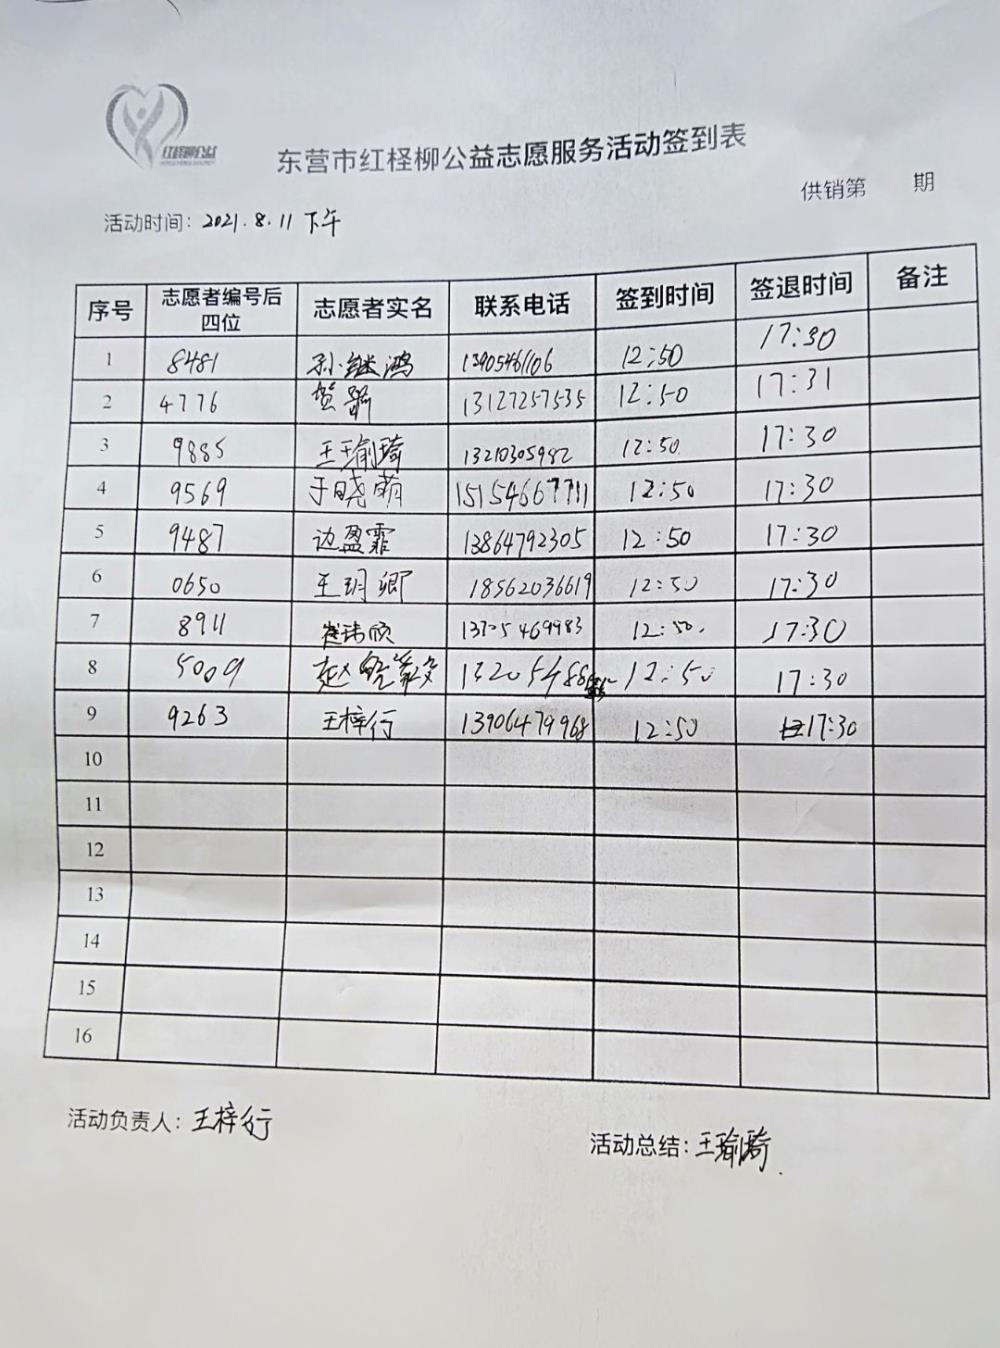 红柽柳公益
东营市红柽柳公益志愿服务活动签到表
供销第 期
活动时间: 2021.8.11 下午
序号 志愿者编号后四位 志愿者实名 联系电话 签到时间 签退时间 备注
1 8481 孙继鸿 13905461106 12:50 17:30
2 4776 贺 13127257535 12:50 17:31
3 9885 王瑜琦 13210305982 12:50 17:30
4 9569 于晓萌 15154667711 12:50 17:30
5 9487 边盈霏 13864792305 12:50 17:30
6 0650 王玥卿 18562036619 12:50 17:30
7 8911 崔祎欣 13705469983 12:50. 17:30
8 5009 赵 13205488 12:50 17:30
9 9263 王梓行 13906479968 12:50 17:30
10
11
12
13
14
15
16
活动负责人: 王梓行
活动总结: 王瑜琦